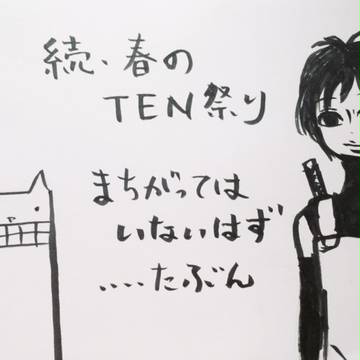 続、春の
TEN祭り
まちがっては
いないはず
‥‥たぶん